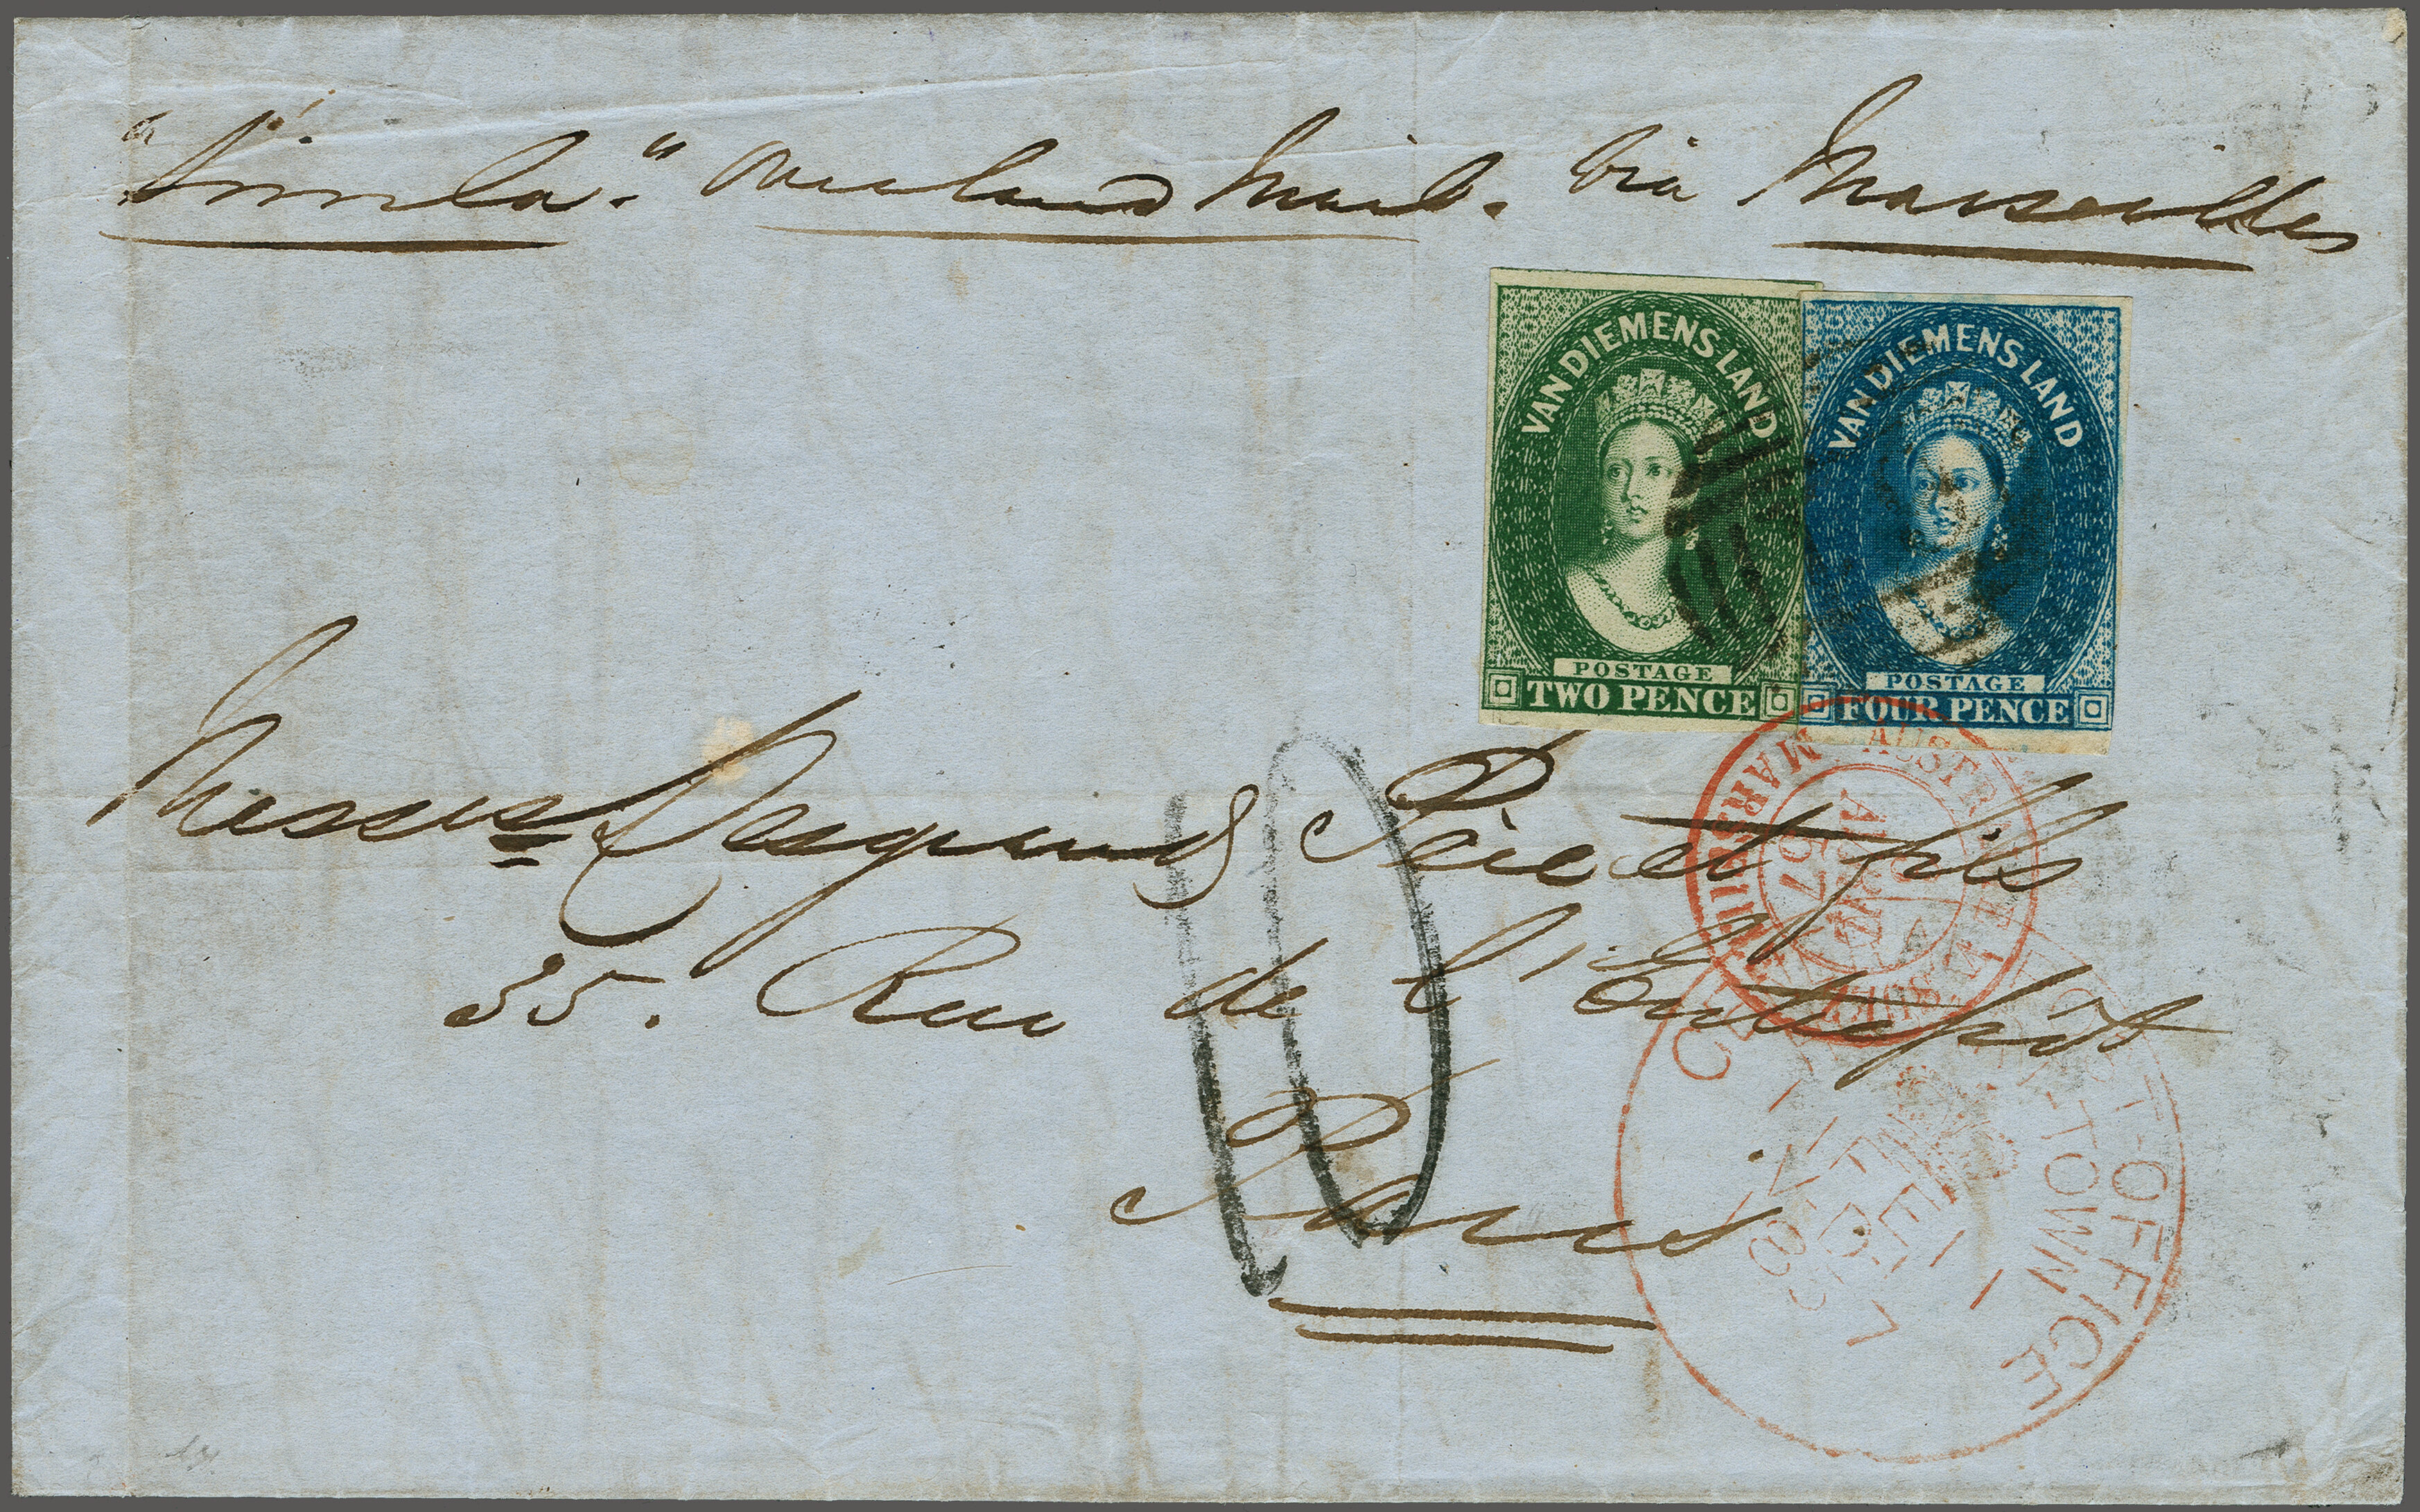 "Simla." Overland Mail. Via Marseilles
VAN DIEMENS LAND
POSTAGE
TWO PENCE
VAN DIEMENS LAND
POSTAGE
FOUR PENCE
Messrs Desgrand Père et fils
35. Rue de l'Entrepôt
Paris
10
MARSEILLE
57
GENERAL POST-OFFICE
HOBART-TOWN